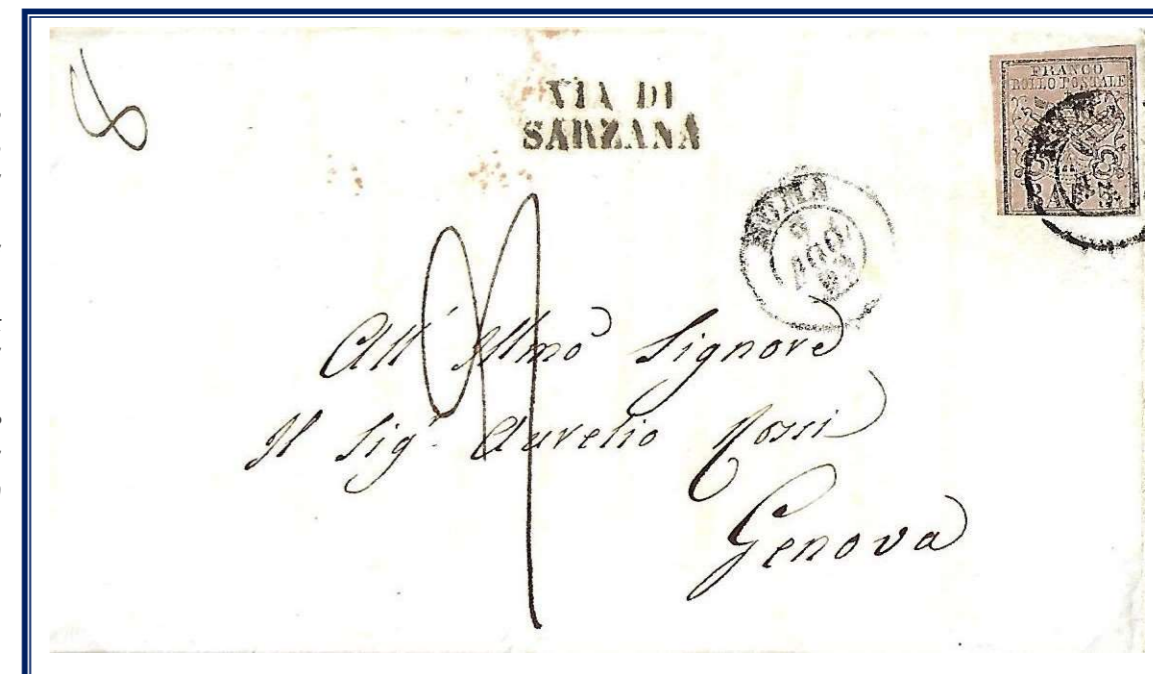 VIA DI
SARZANA
FRANCO
BOLLO POSTALE
BAJ
AGO
All' Illmo Signore
Il Sigr. Aurelio Rossi
Genova